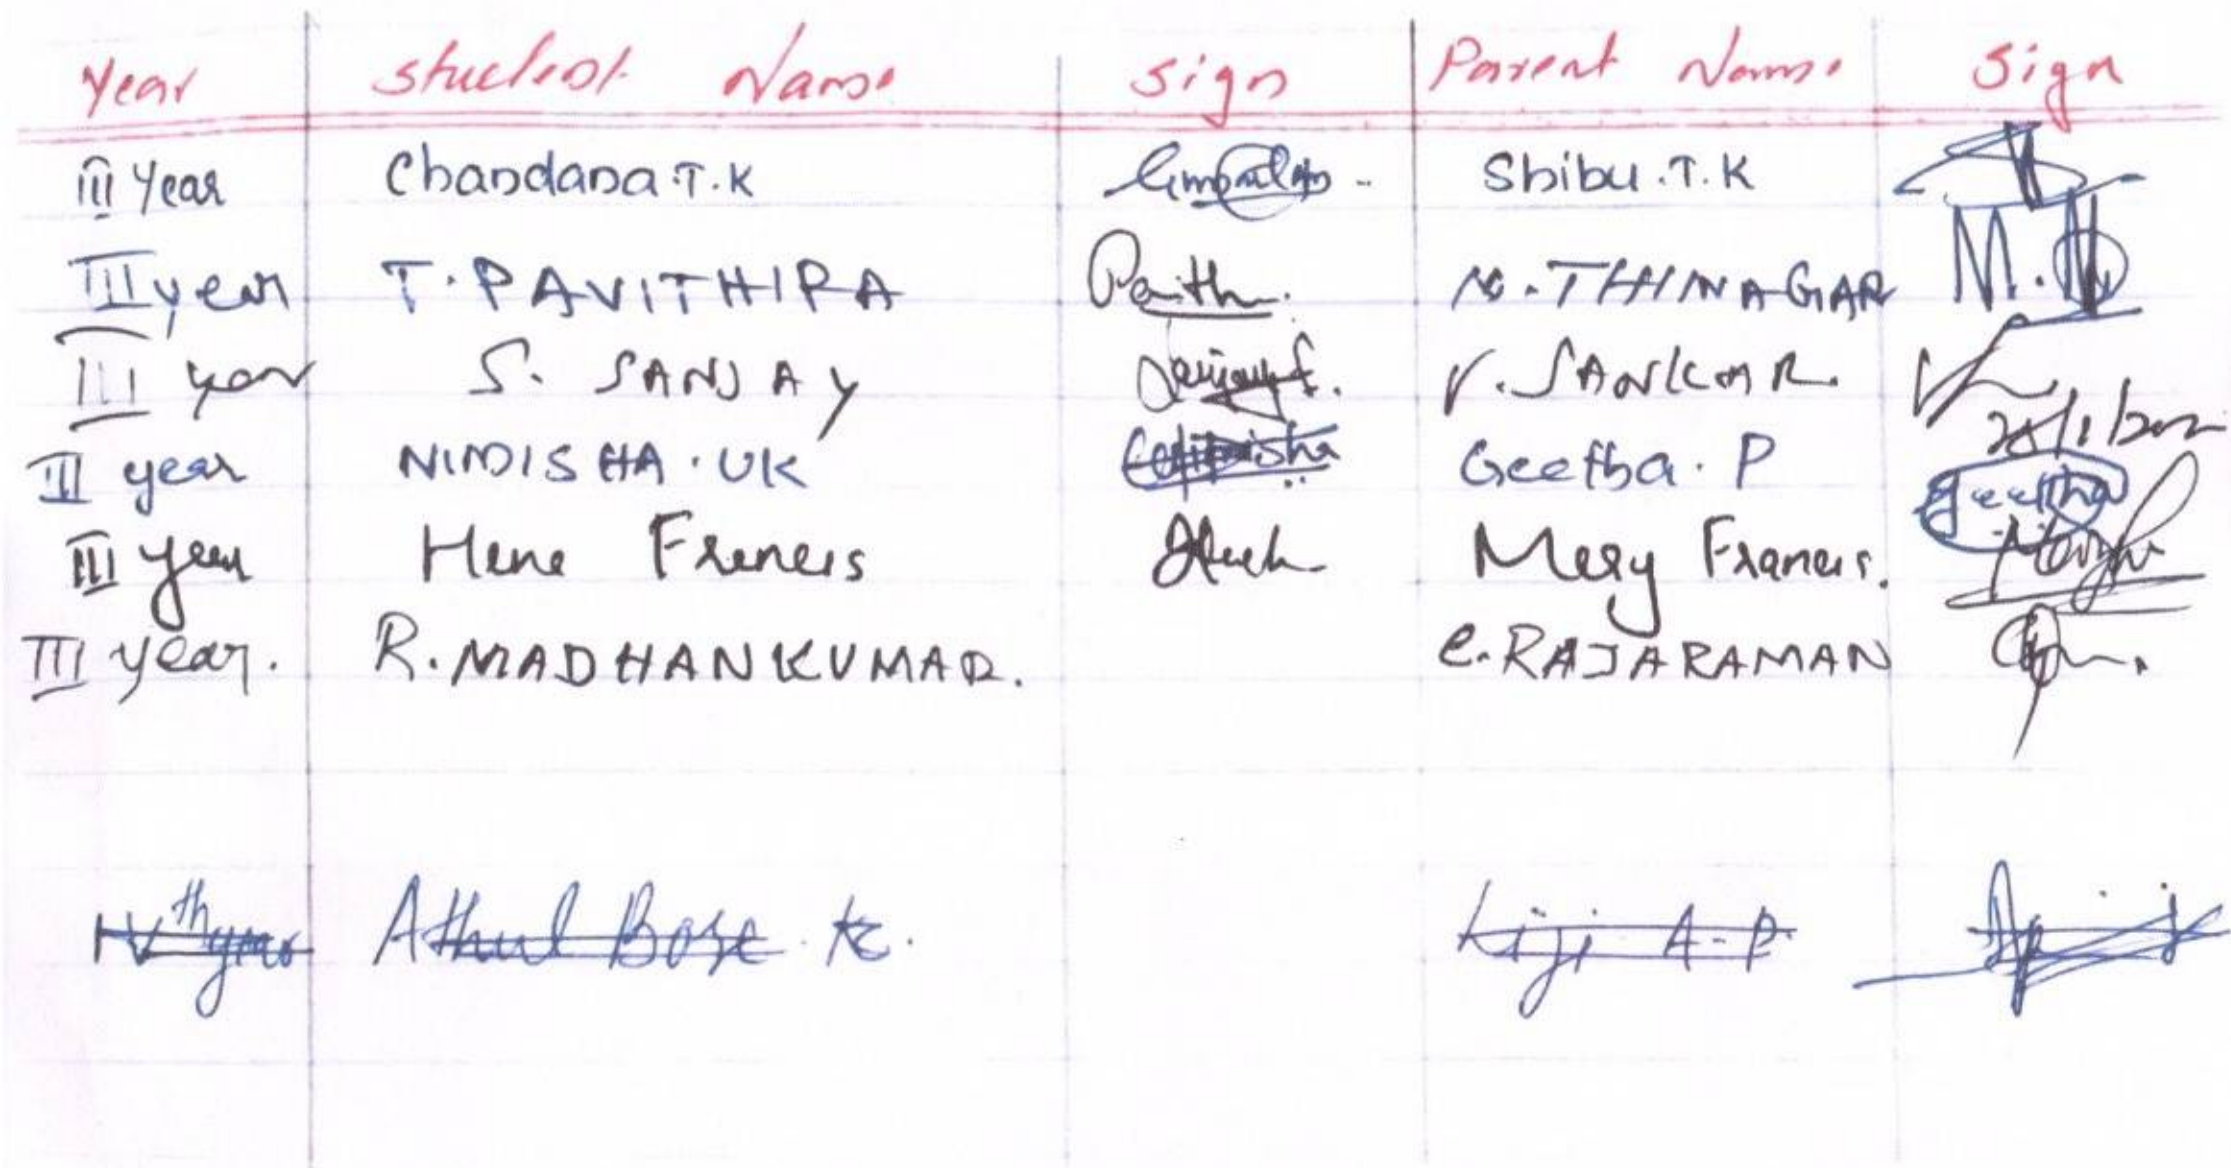 Year Student Name Sign Parent Name Sign
III Year Chandana.T.K Shibu.T.K
III year T.PAVITHIRA Pavith. N.THINAGAR M.
III year S. SANJAY Sanjay.S. V.SANKAR.
II year NIMISHA.UK Geetha.P geetha
III year Hena Francis Mery Francis.
III year. R.MADHANKUMAR. C.RAJARAMAN
IVth year Athul Bose.K. Liji A.P